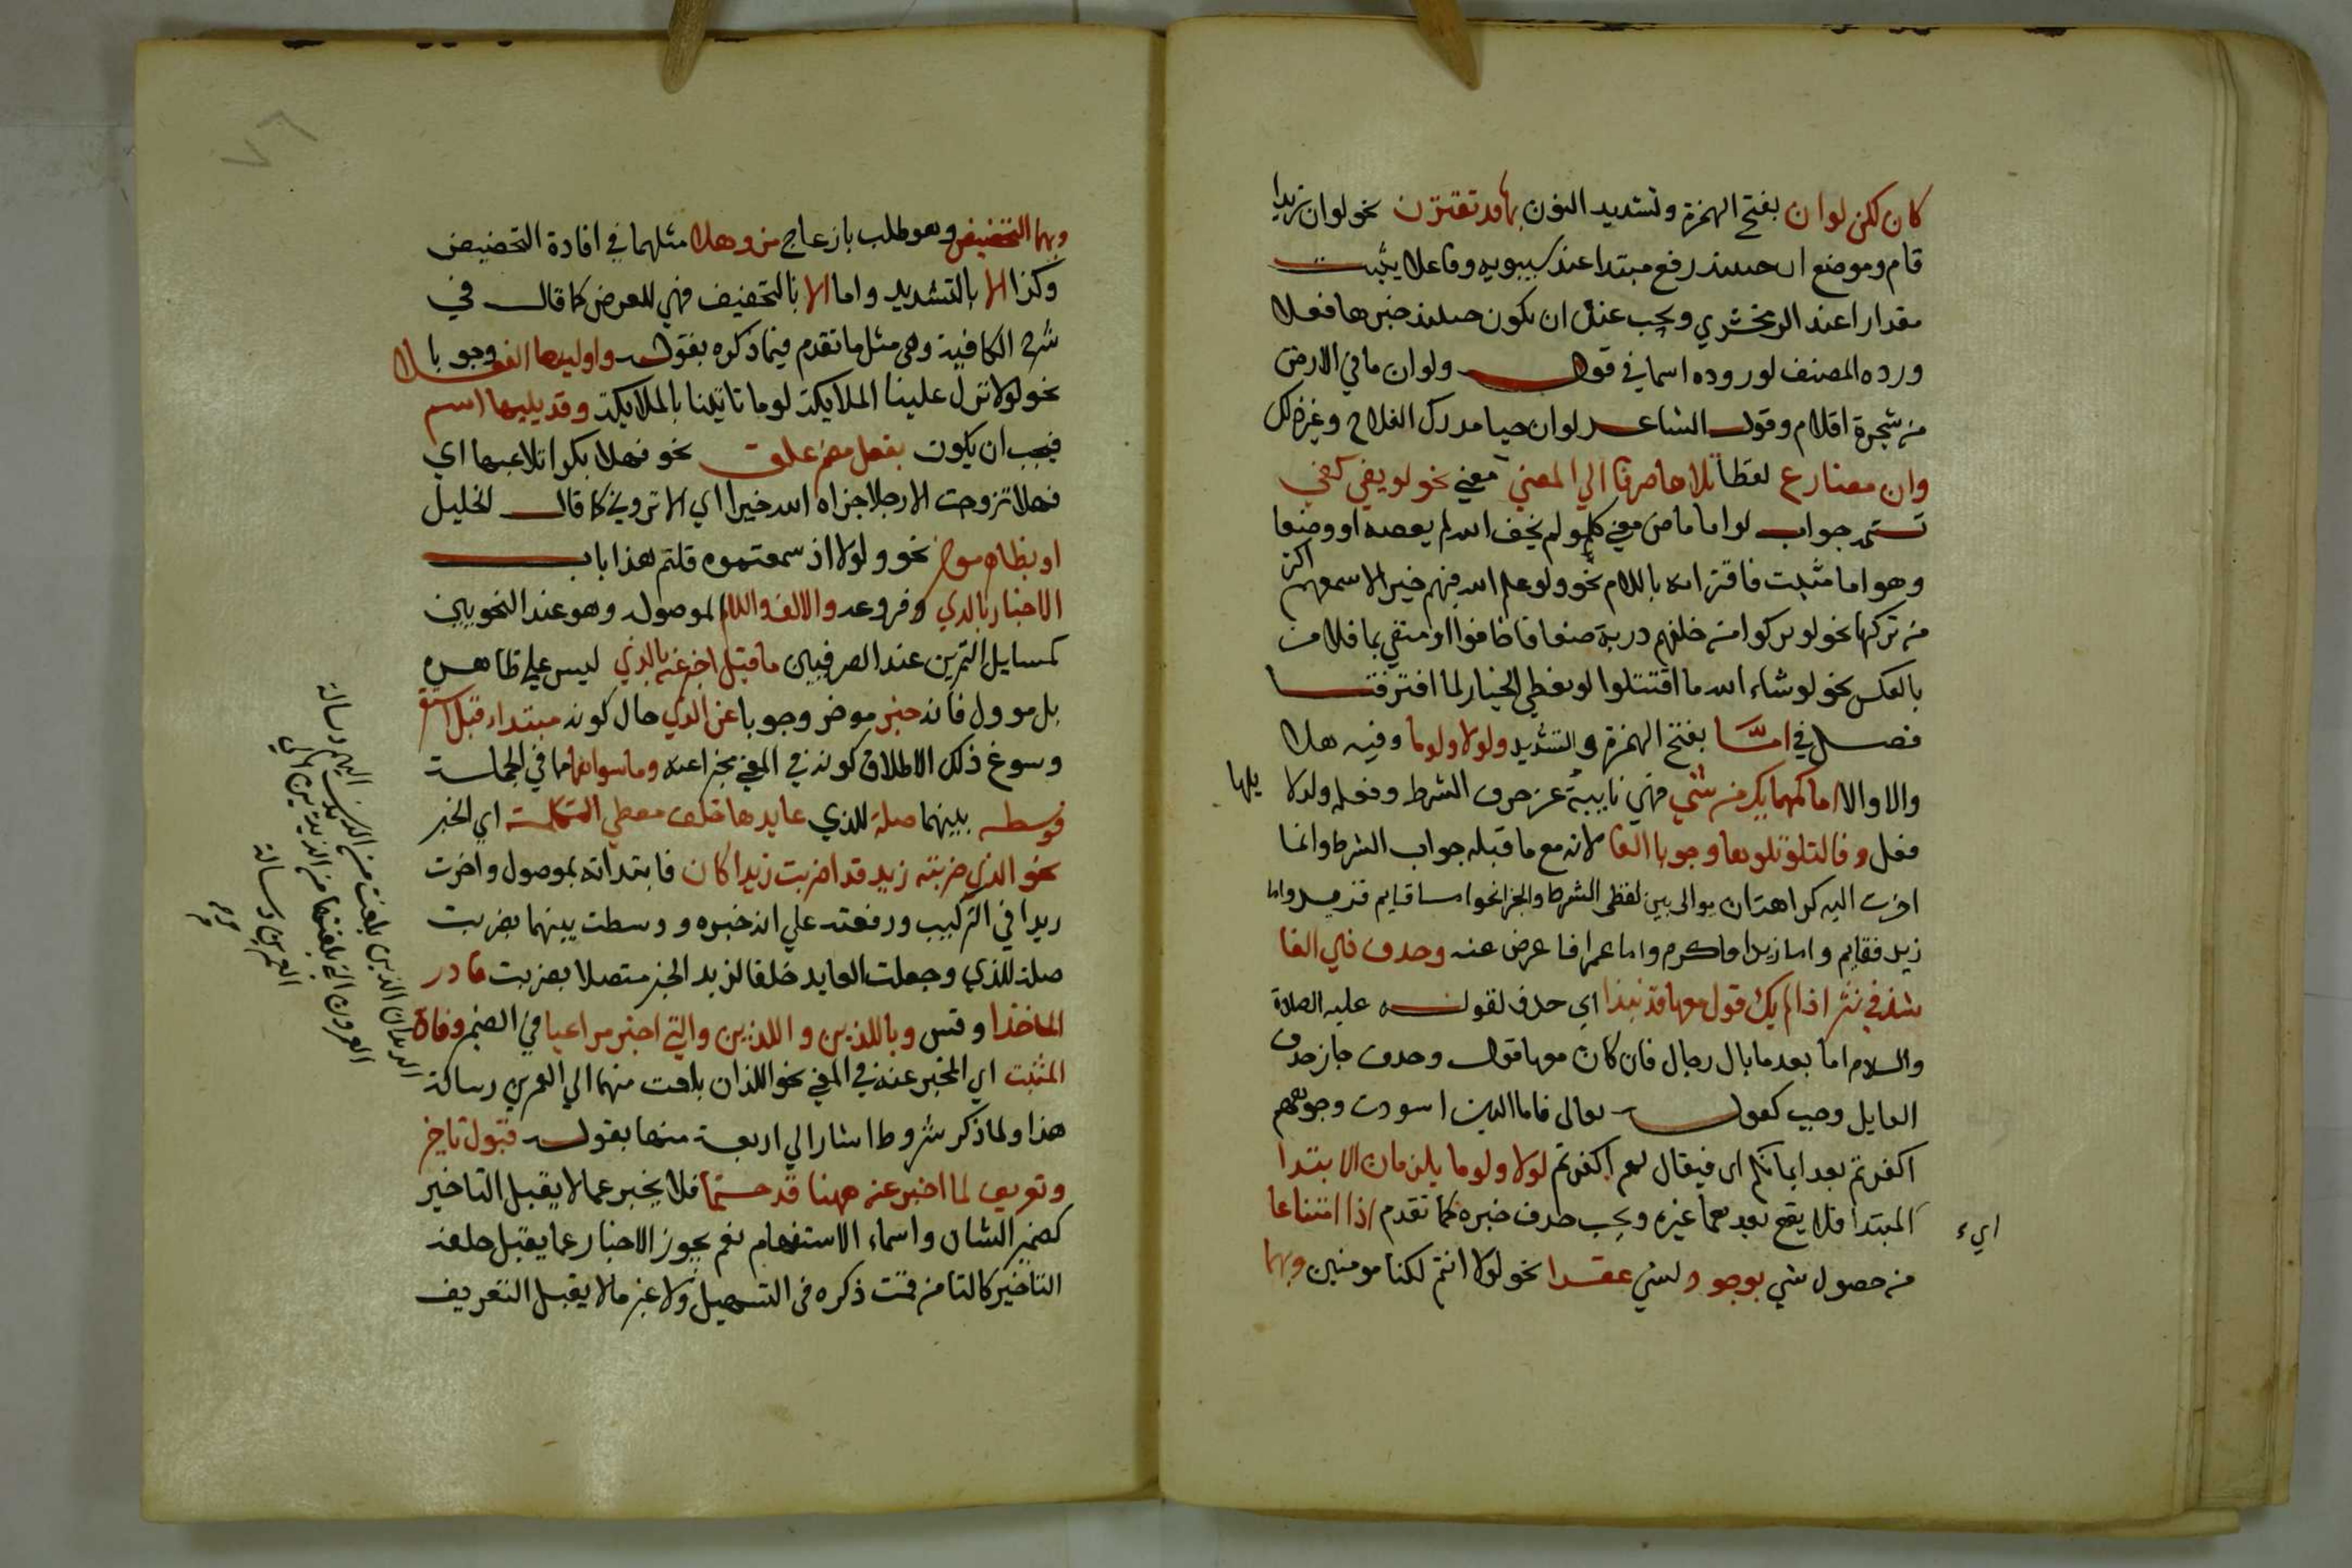 كان لكن لو ان بفتح الهمزة وتشديد النون بها قد تقترن نحو لو ان زيدا
قام وموضع ان حينئذ رفع مبتدا عند سيبويه وفاعلا يثبت
مقدارا عند الزمخشري ويجب عنده ان يكون حينئذ خبرها فعلا
ورده المصنف لوروده اسما في قوله ولو ان ما في الارض
من شجرة اقلام وقول الشاعر لو ان حيا مدرك الفلاح وغير ذلك
وان مضارع لفظا تلاها صرفا الي المضي معني نحو لو يفي كفي
تستمر جواب لو اما ماض معني كلو لم يخف الله لم يعصه او وضعا
وهو اما مثبت فاقترانه باللام نحو ولو علم الله فيهم خيرا لاسمعهم اكثر
من تركها نحو لو تركوا من خلفهم درية ضعافا خافوا او منفي بما فالامر
بالعكس نحو لو شاء الله ما اقتتلوا لو نعطي الخيار لما افترقنا
فصل في امَّا بفتح الهمزة والتشديد ولولا ولوما وفيه هلا
والا والا اما كمهما يك من شي فهي نايبة عن حرف الشرط وفعله ولذلا يلها
فعل وفا لتلو تلوها وجوبا الفا لانه مع ما قبله جواب الشرط وانما
اخرت اليه كراهة ان يوالي بين لفظي الشرط والجزا نحو اما قايم فزيد واما
زيد فقايم واما زيدا فاكرم واما عمرا فاعرض عنه وحذف ذي الفا
شذ في نثر اذا لم يك قول معها قد نبذا اي حذف لقوله عليه الصلاة
والسلام اما بعد ما بال رجال فان كان معها قول وحذف جاز حذف
الفا بل وجب كقوله تعالى فاما الذين اسودت وجوههم
اكفرتم بعد ايمانكم اي فيقال لهم اكفرتم لولا ولوما يلزمان الابتدا
اي المبتدا فلا يقع بعدهما غيره ويجب حذف خبره كما تقدم اذا امتناعا
من حصول شي بوجود لشي عقدا نحو لولا انتم لكنا مومنين وبهما
وبهما التحضيض وهو طلب بازعاج مز وهلا مثلهما في افادة التحضيض
وكذا الا بالتشديد واما الا بالتخفيف فهي للعرض كما قال في
شرح الكافية وهي مثل ما تقدم فيما ذكره بقوله واولينها الفعلا وجوبا
نحو لولا نزل علينا الملايكة لوما تاتينا بالملايكة وقد يليها اسم
فيجب ان يكون بفعل مضمر علق نحو فهلا بكرا تلاعبها اي
فهلا تزوجت الا رجلا جزاه الله خيرا اي الا تروني كما قال الخليل
او بظاهر موخر نحو ولولا اذ سمعتموه قلتم هذا باب
الاخبار بالذي وفروعه والالف واللام الموصول وهو عند النحويين
كمسايل التمرين عند الصرفيين ما قيل اخبر عنه بالذي ليس علي ظاهره
بل موول فانه خبر موخر وجوبا عن الذي حال كونه مبتدا قبل استقر
وسوغ ذلك الاطلاق كونه في المعني مخبرا عنه وما سواهما مما في الجملة
فوسطه بينهما صلة للذي عايدها خلف معطي التكملة اي الخبر
نحو الذي ضربته زيد فذا ضربت زيدا كان فابتداته بموصول واخرت
زيدا في التركيب ورفعته علي انه خبره ووسطت بينهما ضربت
صلة للذي وجعلت العايد خلفا لزيد الخبر متصلا بضربت فادر
الماخذا وقس وباللذين والذين والتي اخبر مراعيا في الضمير وفاق
المثبت اي المخبر عنه في المعني نحو اللذان بلغت منهما الي العمرين رسالة
هذا ولما ذكر شروط اشار الي اربعة منها بقوله قبول تاخير
وتعريف لما اخبر عنه ههنا قد حتما فلا يخبر عما لا يقبل التاخير
كضمير الشان واسماء الاستفهام نعم يجوز الاخبار عما يقبل خلفه
التاخير كالتا من قمت ذكره في التسهيل ولا عن ما لا يقبل التعريف